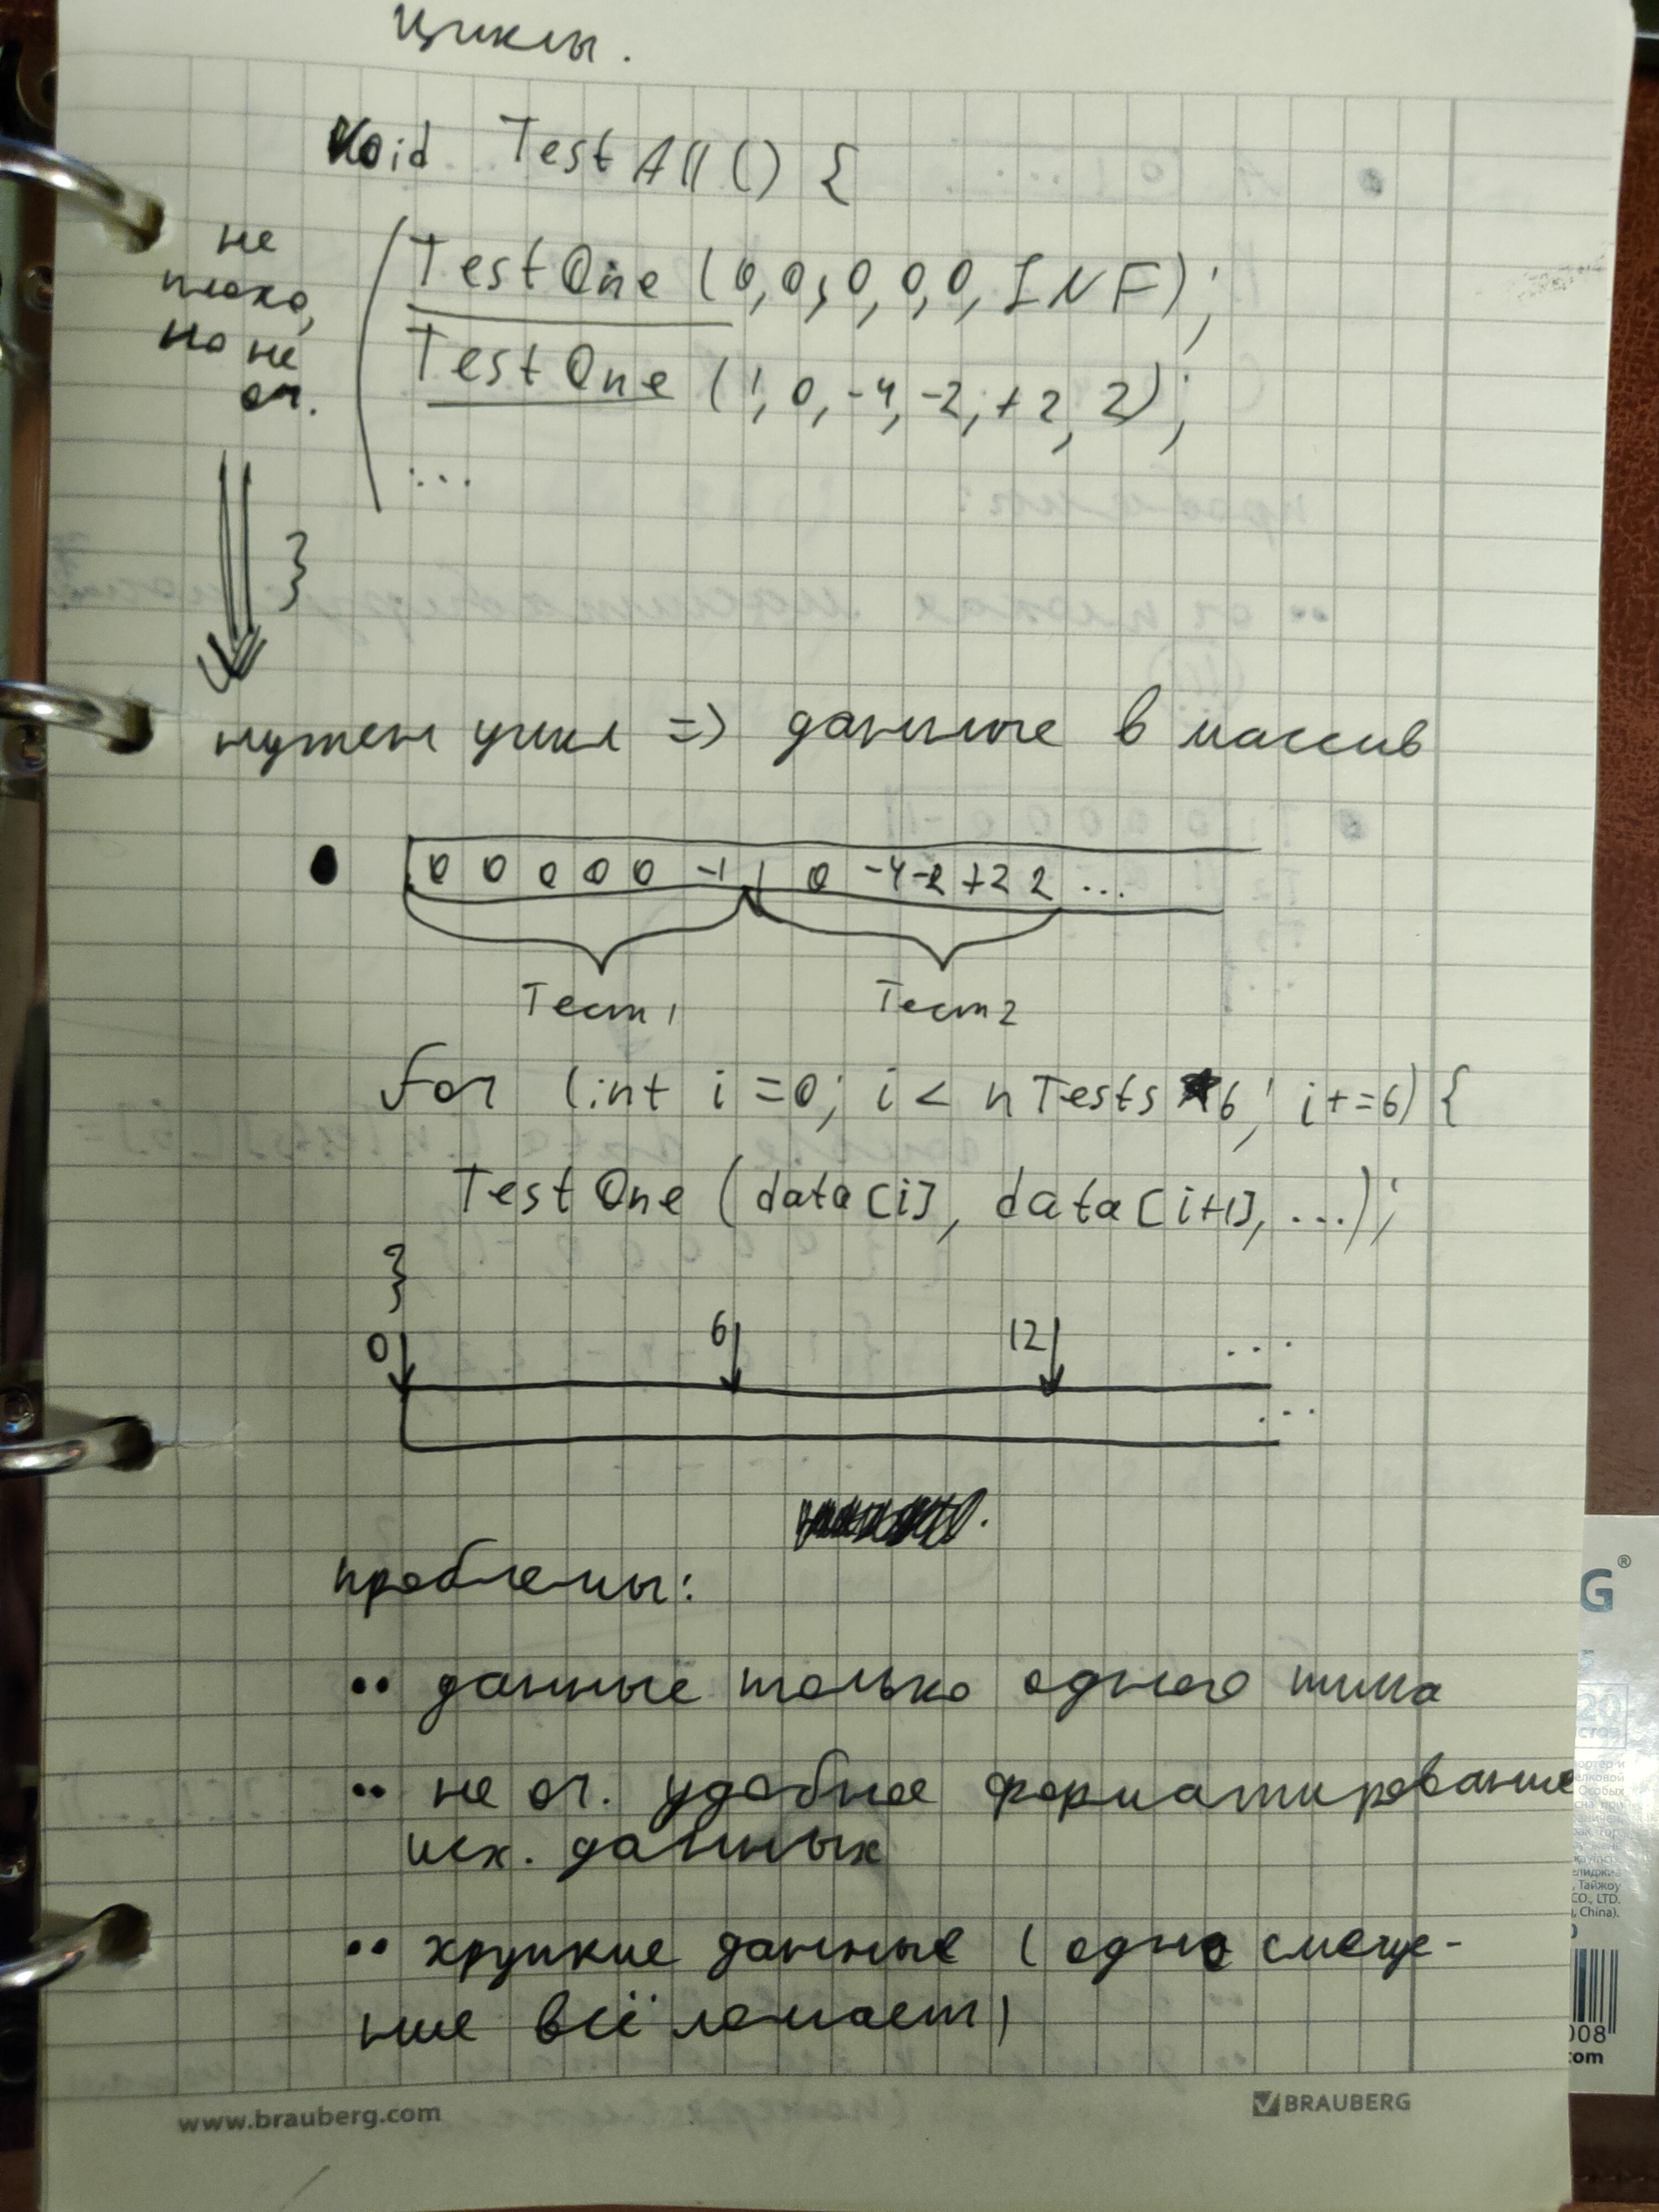 Циклы.
void TestAll() {
не
плохо,
но не
оч.
TestOne (0,0,0,0,0, INF);
TestOne (1, 0, -4, -2, +2, 2);
...
}
нужен цикл => данные в массив
0 0 0 0 0 -1 1 0 -4 -2 +2 2 ...
Тест1 Тест2
for (int i=0; i < nTests*6; i+=6) {
TestOne (data[i], data[i+1], ...);
}
0 6 12 ...
...
проблемы:
•• данные только одного типа
•• не оч. удобное форматирование
исх. данных
•• хрупкие данные (одно смеще-
ние всё ломает)
www.brauberg.com BRAUBERG
G®
20
Тайжоу
CO., LTD.
China).
008
com